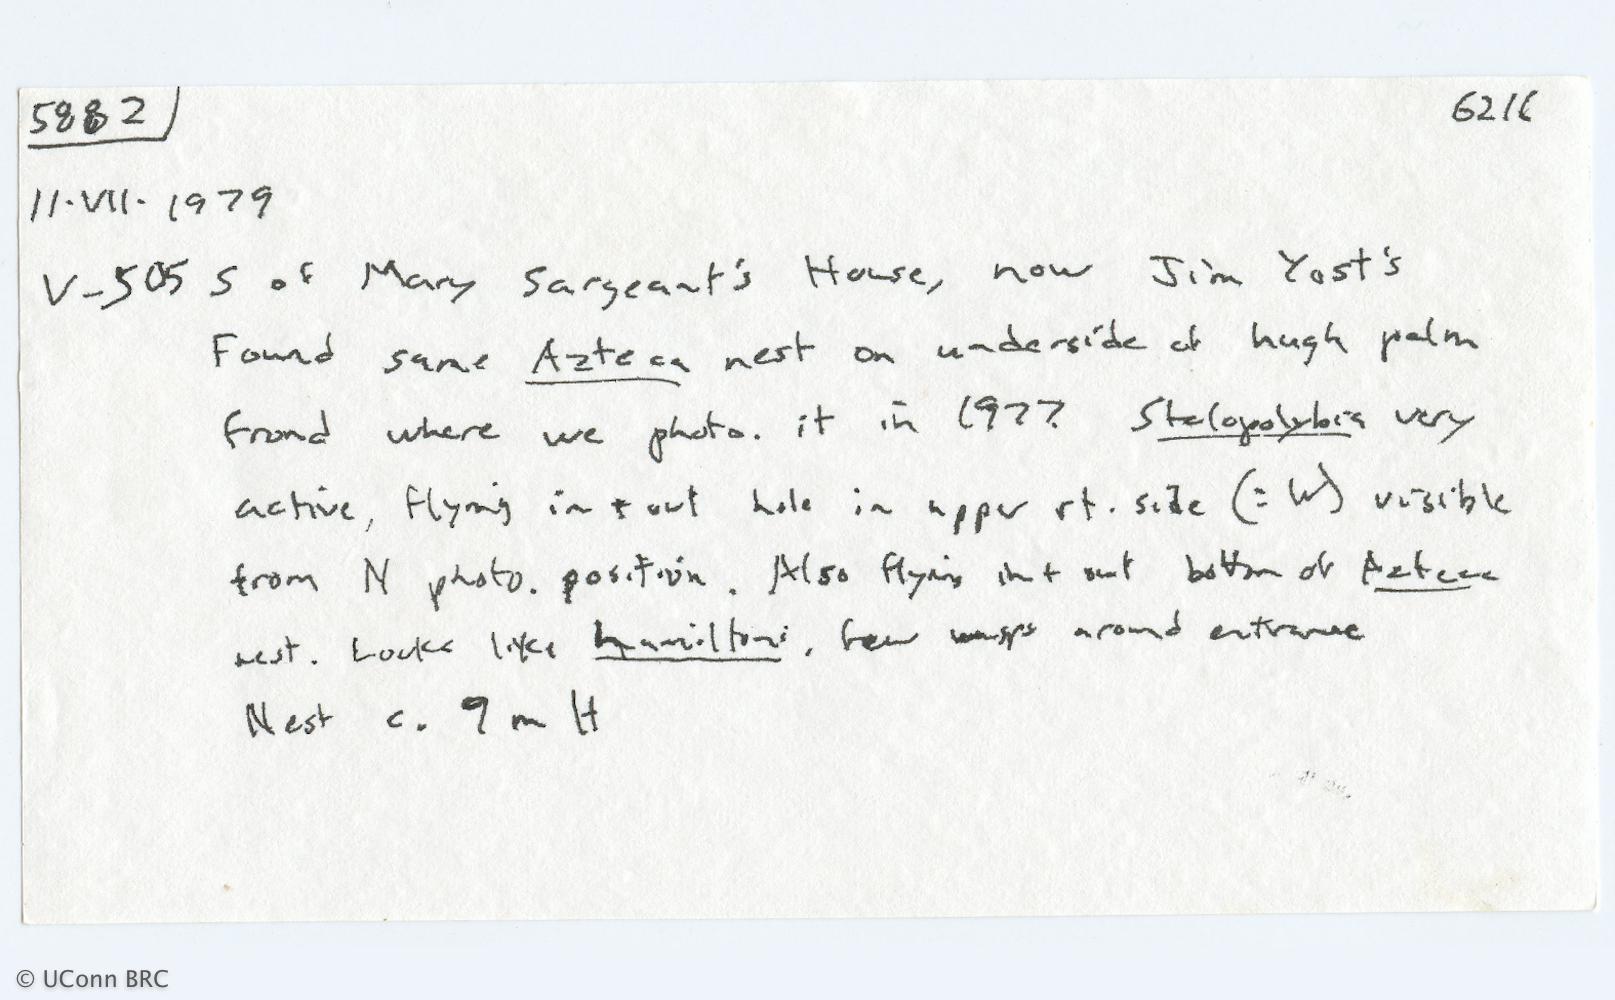 5882
6216
11·VII·1979
V-505 S of Mary Sargeant's House, now Jim Yost's
Found same Azteca nest on underside of hugh palm
frond where we photo. it in 1977. Stelopolybia very
active, flying in + out hole in upper rt. side (= W) visible
from N photo. position. Also flying in + out bottom of Azteca
nest. Looks like hamiltoni, few wasps around entrance
Nest c. 9 m H
© UConn BRC